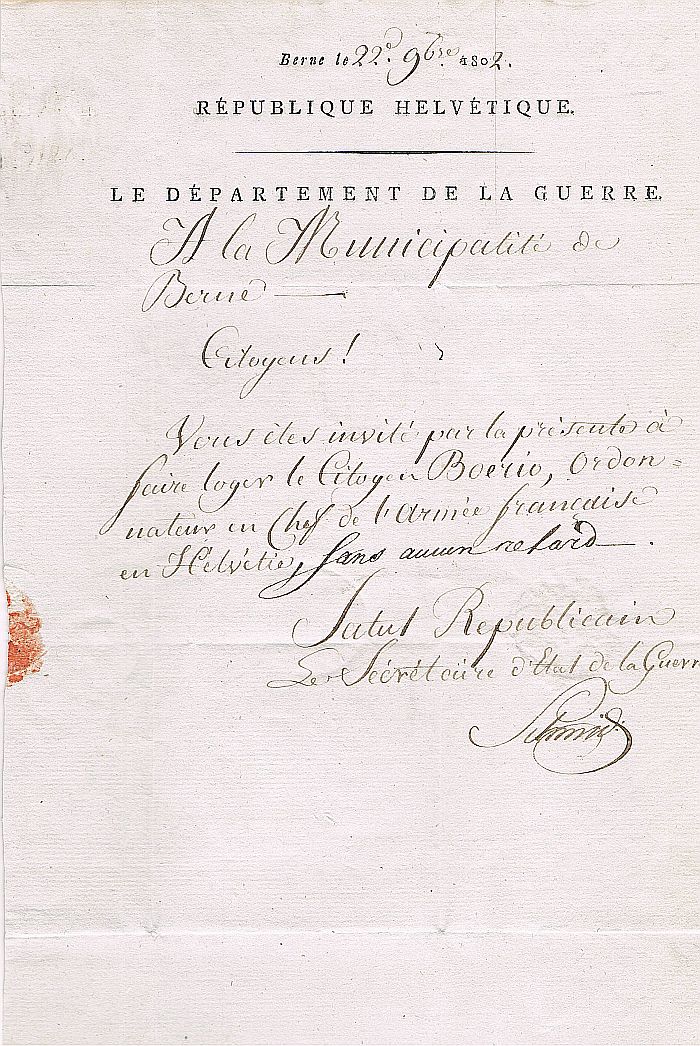 Berne le 22e. 9bre. 1802.
RÉPUBLIQUE HELVÉTIQUE.
LE DÉPARTEMENT DE LA GUERRE.
A la Municipalité de
Berne
Citoyens!
Vous étes invité par la présente à
faire loger le Citoyen Boerio, Ordon=
nateur en Chef de l'Armée française
en Helvétie, sans aucun retard.
Salut Republicain
Le Sécrétaire d'Etat de la Guerr
Schmid.